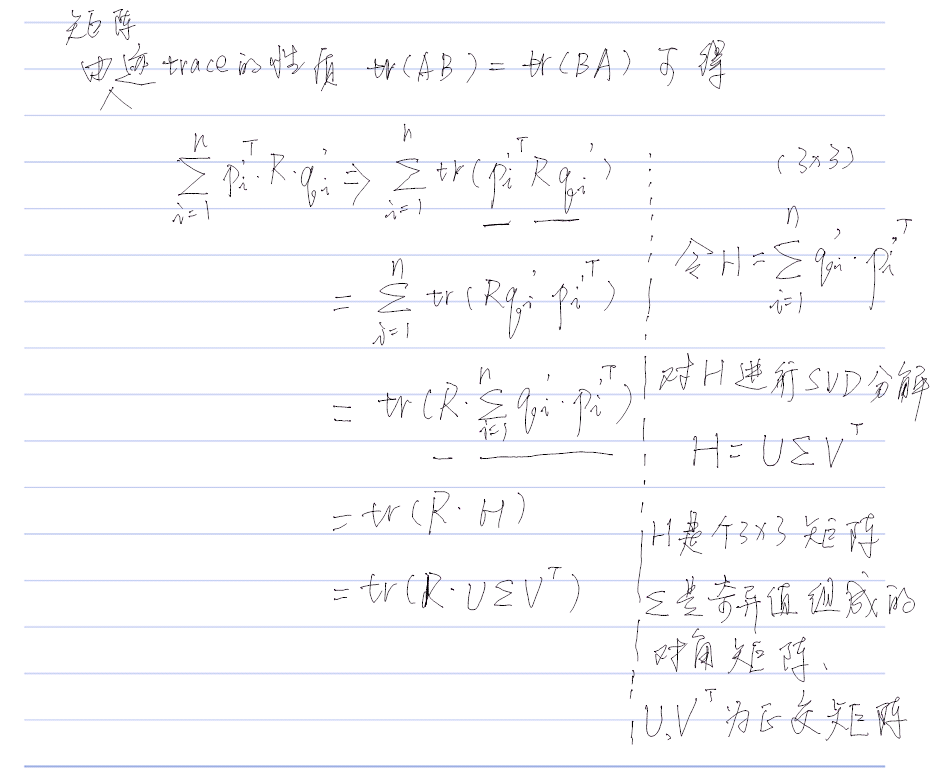 矩阵
由迹trace的性质 tr(AB) = tr(BA) 可得
∑_{i=1}^{n} p_i'^T · R · q_i' ⇒ ∑_{i=1}^{n} tr(p_i'^T R q_i')
= ∑_{i=1}^{n} tr(R q_i' p_i'^T)
= tr(R · ∑_{i=1}^{n} q_i' · p_i'^T)
= tr(R · H)
= tr(R · U Σ V^T)
(3×3)
令 H = ∑_{i=1}^{n} q_i' · p_i'^T
对H进行SVD分解
H = U Σ V^T
H是个3×3矩阵
Σ是奇异值组成的
对角矩阵、
U、V^T为正交矩阵